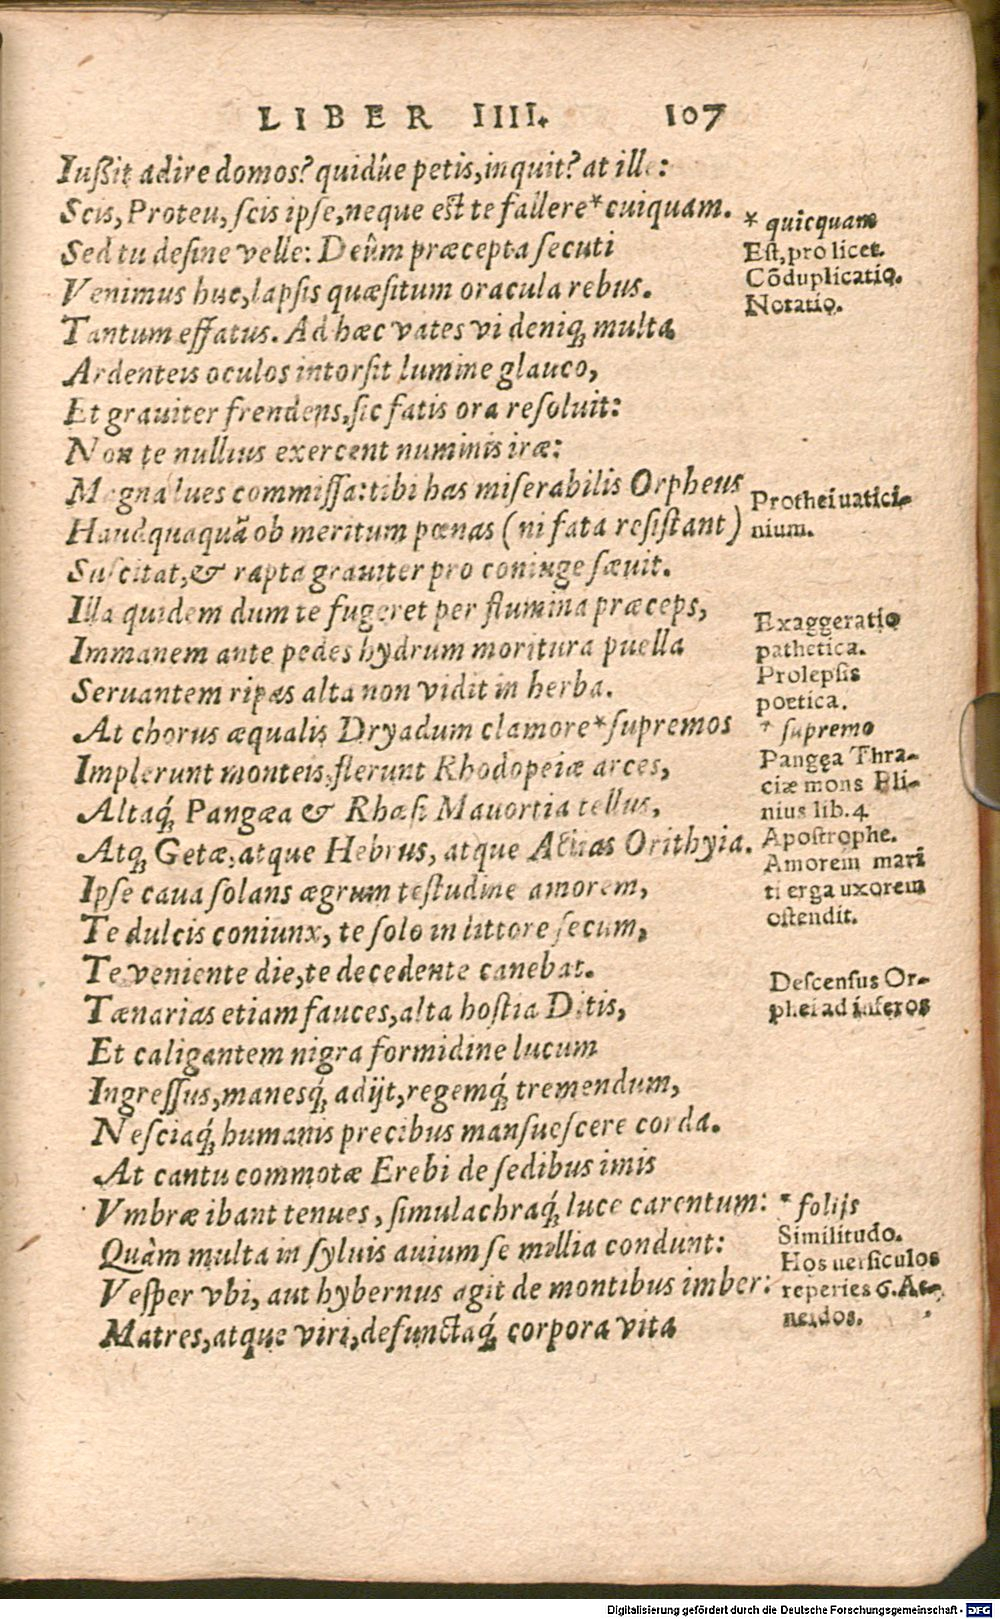 LIBER IIII. 107
Iußit adire domos? quidûe petis, inquit? at ille:
Scis, Proteu, scis ipse, neque est te fallere * cuiquam.
Sed tu desine velle: Deûm præcepta secuti
Venimus huc, lapsis quæsitum oracula rebus.
Tantum effatus. Ad hæc vates vi deniq; multa
Ardenteis oculos intorsit lumine glauco,
Et grauiter frendens, sic fatis ora resoluit:
Non te nullius exercent numinis iræ:
Magna lues commissa: tibi has miserabilis Orpheus
Haudquaquã ob meritum pœnas (ni fata resistant)
Suscitat, & rapta grauiter pro coniuge sæuit.
Illa quidem dum te fugeret per flumina præceps,
Immanem ante pedes hydrum moritura puella
Seruantem ripas alta non vidit in herba.
At chorus æqualis Dryadum clamore * supremos
Implerunt monteis, flerunt Rhodopeiæ arces,
Altaq́; Pangæa & Rhæsi Mauortia tellus,
Atq; Getæ, atque Hebrus, atque Actias Orithyia.
Ipse caua solans ægrum testudine amorem,
Te dulcis coniunx, te solo in littore secum,
Te veniente die, te decedente canebat.
Tænarias etiam fauces, alta hostia Ditis,
Et caligantem nigra formidine lucum
Ingressus, manesq́; adijt, regemq́; tremendum,
Nesciaq́; humanis precibus mansuescere corda.
At cantu commotæ Erebi de sedibus imis
Vmbræ ibant tenues, simulachraq́; luce carentum:
Quàm multa in syluis auium se millia condunt:
Vesper vbi, aut hybernus agit de montibus imber:
Matres, atque viri, defunctaq́; corpora vita
* quicquam
Est, pro licet.
Cõduplicatio.
Notatio.
Prothei uatici-
nium.
Exaggeratio
pathetica.
Prolepsis
poetica.
* supremo
Pangęa Thra-
ciæ mons Pli-
nius lib. 4.
Apostrophe.
Amorem mari
ti erga uxorem
ostendit.
Descensus Or-
phei ad inferos
* folijs
Similitudo.
Hos uersiculos
reperies 6. Ae-
neidos.
Digitalisierung gefördert durch die Deutsche Forschungsgemeinschaft - DFG